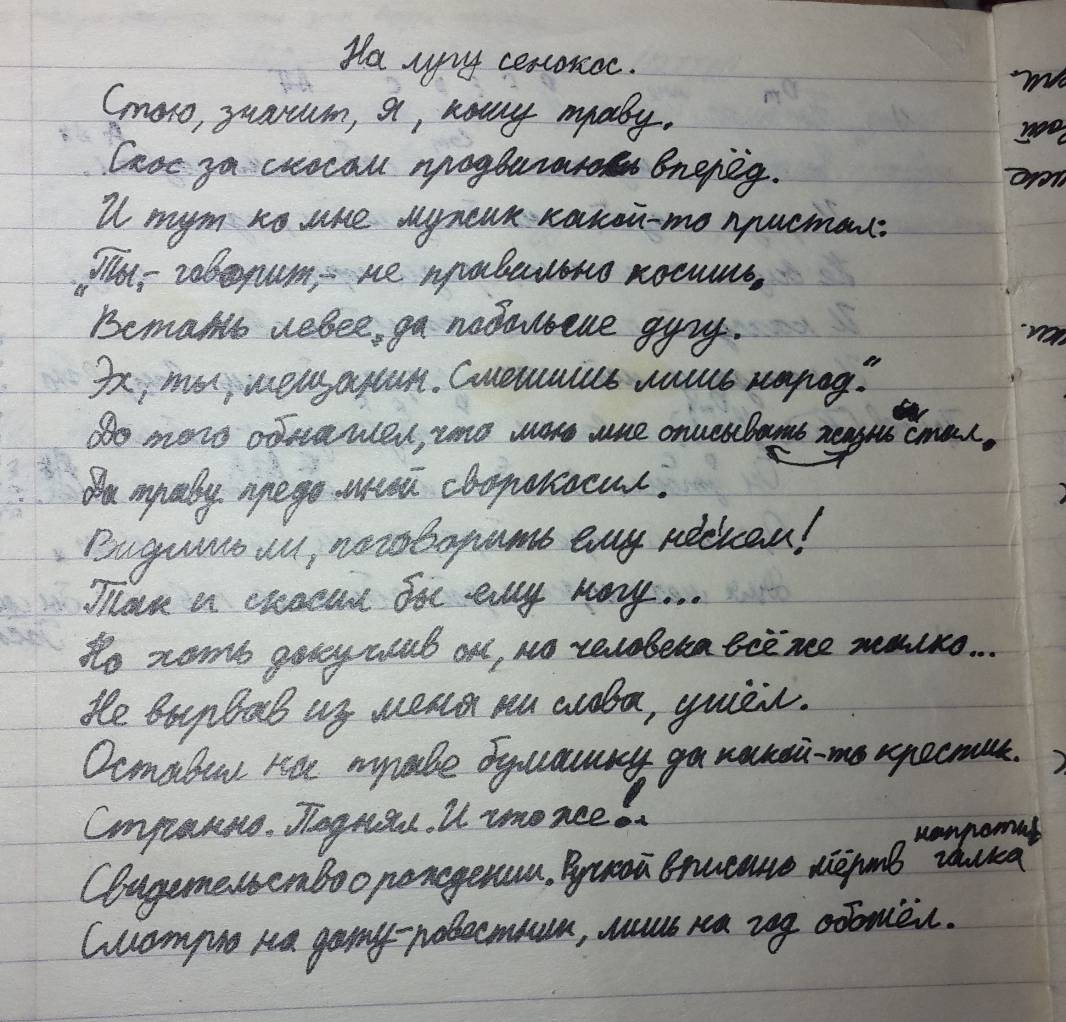 На лугу сенокос.
Стою, значит, я, кошу траву.
Скос за скосом продвигаюсь вперёд.
И тут ко мне мужик какой-то пристал:
"Ты,- говорит,- не правильно косишь.
Встань левее, да побольше дугу.
Эх, ты, мещанин. Смешишь лишь народ."
До того обнаглел, что мою мне описывать жизнь бы стал.
Да траву предо мной своро косил.
Видишь ли, поговорить ему не с кем!
Так и скосил бы ему ногу...
Но хоть докучлив он, но человека всё же жалко...
Не вырвав из меня ни слова, ушёл.
Оставил на траве бумашку да какой-то крестик.
Странно. Поднял. И что же!..
напротив
Свидетельство о рождении. Ручкой вписано мёртв галка
Смотрю на дату-ровестник, лишь на год обошёл.